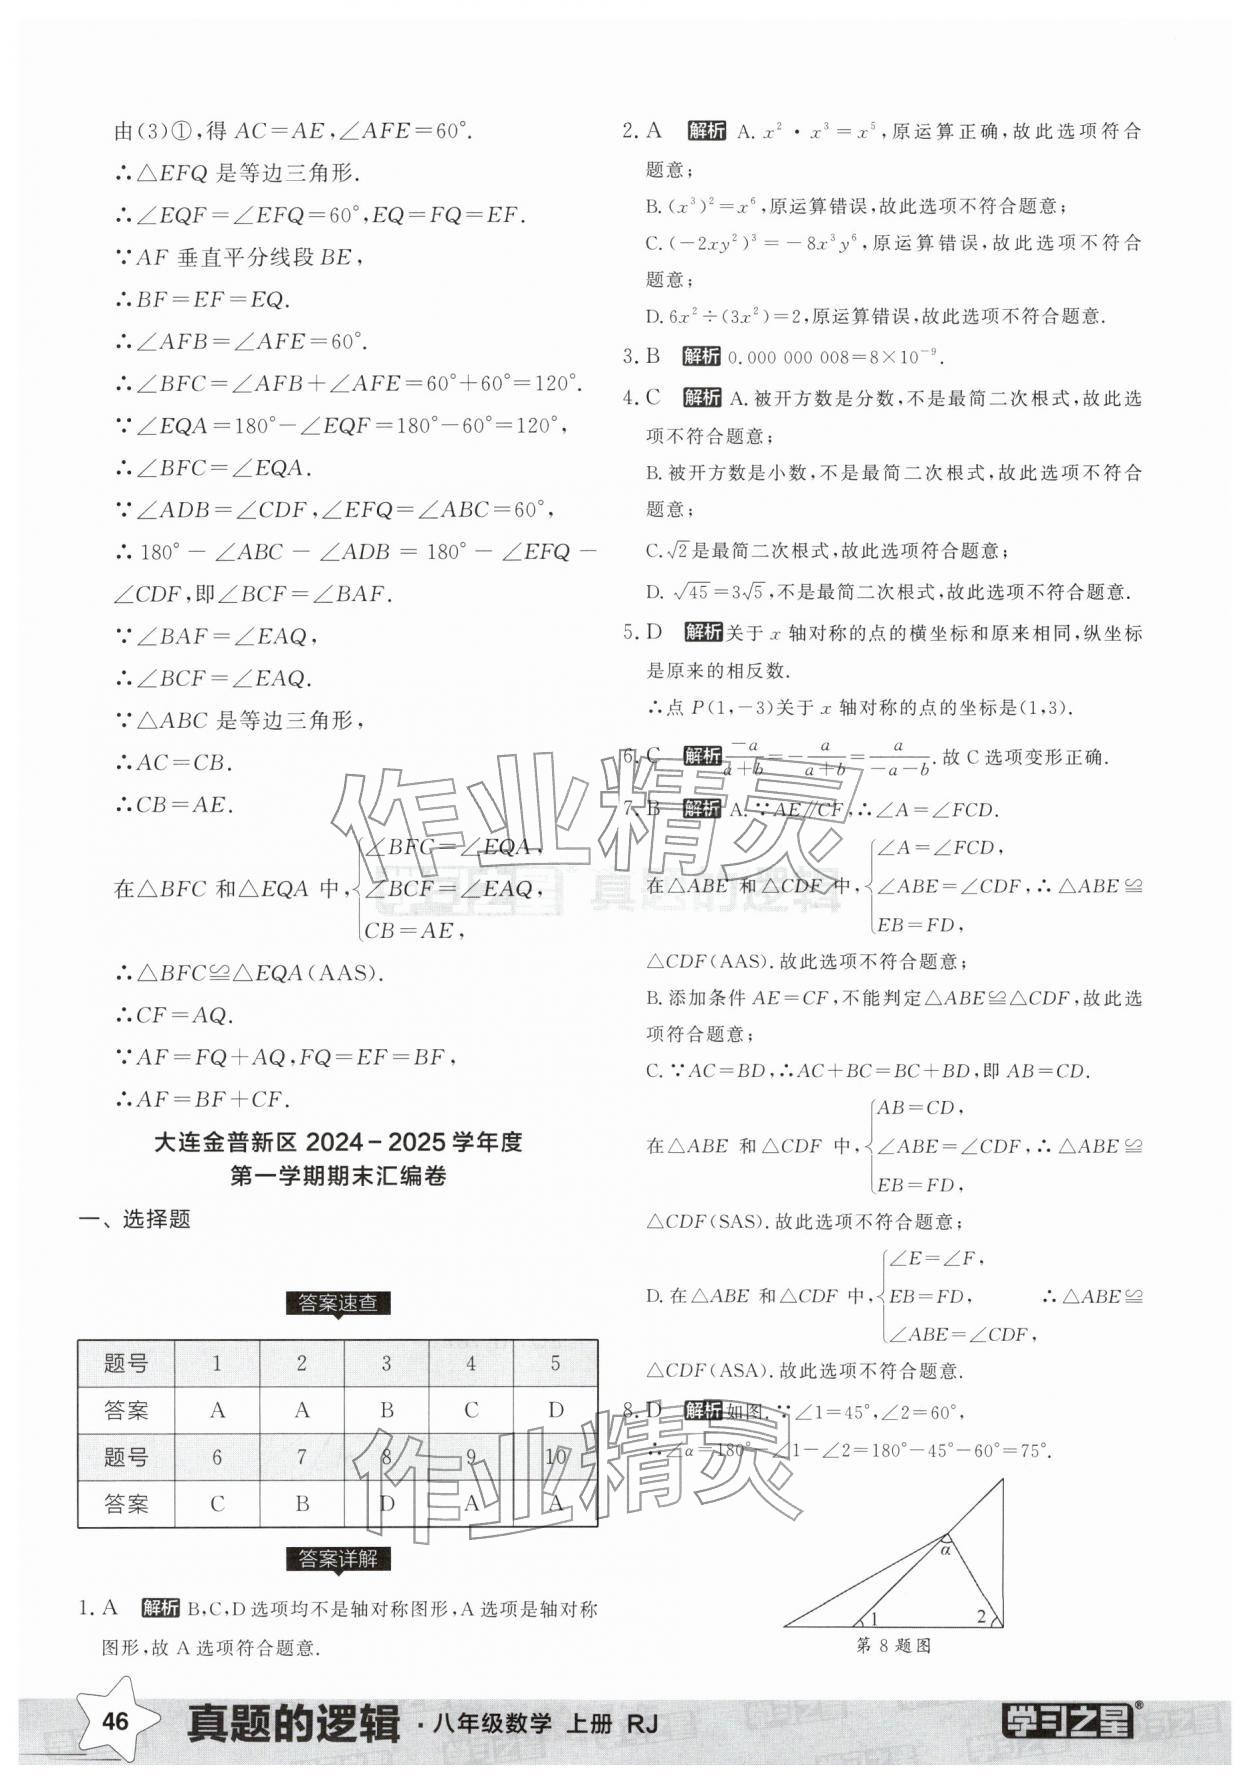 由(3)①,得 AC=AE,∠AFE=60°.
∴△EFQ 是等边三角形.
∴∠EQF=∠EFQ=60°,EQ=FQ=EF.
∵AF 垂直平分线段 BE,
∴BF=EF=EQ.
∴∠AFB=∠AFE=60°.
∴∠BFC=∠AFB+∠AFE=60°+60°=120°.
∵∠EQA=180°-∠EQF=180°-60°=120°,
∴∠BFC=∠EQA.
∵∠ADB=∠CDF,∠EFQ=∠ABC=60°,
∴180°-∠ABC-∠ADB=180°-∠EFQ-
∠CDF,即∠BCF=∠BAF.
∵∠BAF=∠EAQ,
∴∠BCF=∠EAQ.
∵△ABC 是等边三角形,
∴AC=CB.
∴CB=AE.
在△BFC 和△EQA 中,{∠BFC=∠EQA,
∠BCF=∠EAQ,
CB=AE,
∴△BFC≌△EQA(AAS).
∴CF=AQ.
∵AF=FQ+AQ,FQ=EF=BF,
∴AF=BF+CF.
大连金普新区 2024-2025 学年度
第一学期期末汇编卷
一、选择题
答案速查
题号 1 2 3 4 5
答案 A A B C D
题号 6 7 8 9 10
答案 C B D A A
答案详解
1. A 解析 B,C,D 选项均不是轴对称图形,A 选项是轴对称
图形,故 A 选项符合题意.
2. A 解析 A. x²·x³=x⁵,原运算正确,故此选项符合
题意;
B. (x³)²=x⁶,原运算错误,故此选项不符合题意;
C. (-2xy²)³=-8x³y⁶,原运算错误,故此选项不符合
题意;
D. 6x²÷(3x²)=2,原运算错误,故此选项不符合题意.
3. B 解析 0.000 000 008=8×10⁻⁹.
4. C 解析 A. 被开方数是分数,不是最简二次根式,故此选
项不符合题意;
B. 被开方数是小数,不是最简二次根式,故此选项不符合
题意;
C. √2是最简二次根式,故此选项符合题意;
D. √45=3√5,不是最简二次根式,故此选项不符合题意.
5. D 解析 关于 x 轴对称的点的横坐标和原来相同,纵坐标
是原来的相反数.
∴点 P(1,-3)关于 x 轴对称的点的坐标是(1,3).
6. C 解析 -a/(a+b)=-a/(a+b)=a/(-a-b).故 C 选项变形正确.
7. B 解析 A. ∵AE∥CF,∴∠A=∠FCD.
在△ABE 和△CDF 中,{∠A=∠FCD,
∠ABE=∠CDF,∴△ABE≌
EB=FD,
△CDF(AAS).故此选项不符合题意;
B. 添加条件 AE=CF,不能判定△ABE≌△CDF,故此选
项符合题意;
C. ∵AC=BD,∴AC+BC=BC+BD,即 AB=CD.
在△ABE 和△CDF 中,{AB=CD,
∠ABE=∠CDF,∴△ABE≌
EB=FD,
△CDF(SAS).故此选项不符合题意;
D. 在△ABE 和△CDF 中,{∠E=∠F,
EB=FD, ∴△ABE≌
∠ABE=∠CDF,
△CDF(ASA).故此选项不符合题意.
8. D 解析 如图.∵∠1=45°,∠2=60°,
∴∠α=180°-∠1-∠2=180°-45°-60°=75°.
α
1
2
第 8 题图
作业精灵
作业精灵
学习之星® 真题的逻辑
46
真题的逻辑·八年级数学 上册 RJ
学习之星®